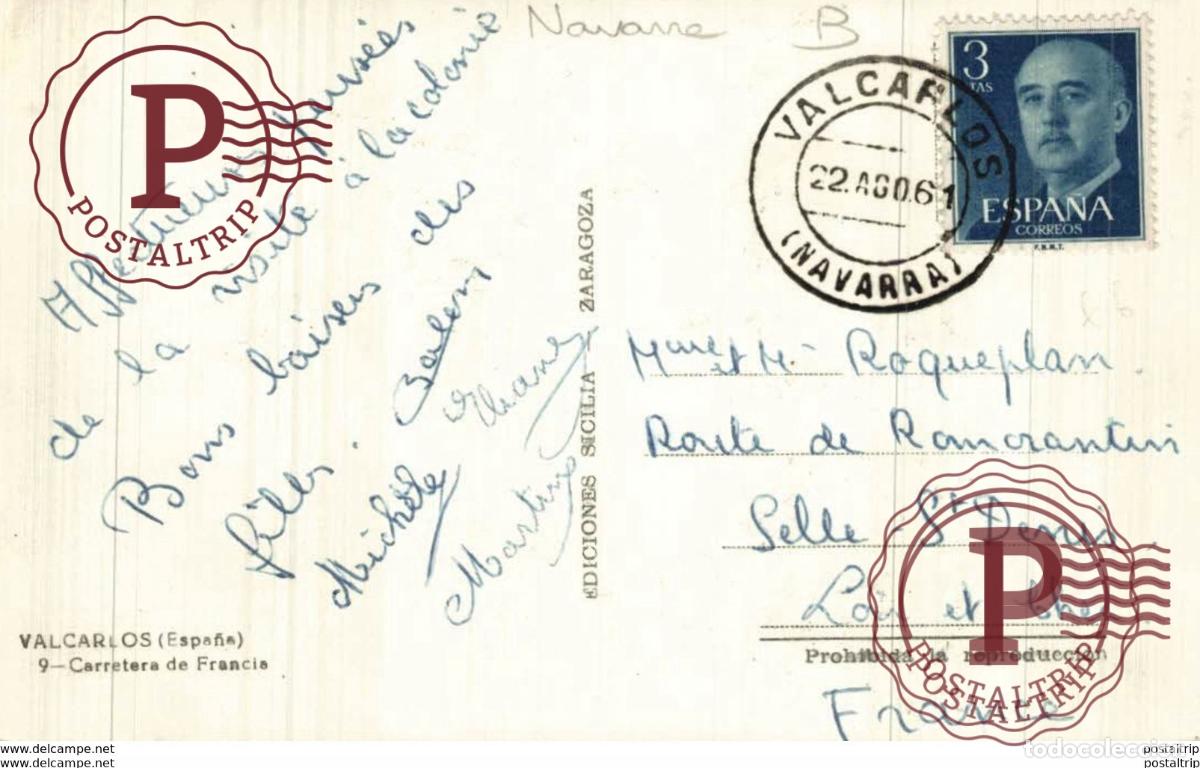 Navarre B
3
PTAS
ESPAÑA
CORREOS
F.N.M.T.
VALCARLOS
22.AGO.61
(NAVARRA)
Affectueuses pensées
de la visite à la colonie
Bons baisers des
filles.
Michèle
Eliane
Martine
EDICIONES SICILIA - ZARAGOZA
Mme et Mr Roqueplan
Route de Romorantin
Selle-St Denis
Loir et Cher
France
Prohibida la reproducción
VALCARLOS (España)
9—Carretera de Francia
P
POSTALTRIP
P
POSTALTRIP
POSTALTRIP
www.delcampe.net
www.delcampe.net
todocoleccion
postaltrip
postaltrip